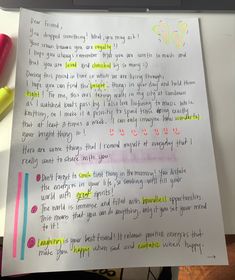 Dear Friend,
You dropped something! What, you may ask?
Your crown because you are royalty!!
I hope you always remember that you are worth so much and
that you are loved and cherished by so many :)
During this period of time in which we are living through,
I hope you can find the bright things in your day and hold them
tight! For me, this was through walks in my city of
as I watched boats pass by. I also love listening to music while
knitting, or I make it a priority to spend time doing exactly
that at least 3 times a week. I can only imagine how wonderful
your bright thing is!
Here are some things that I remind myself of everyday that I
really want to share with you:
Don't forget to smile first thing in the morning! You dictate
the energies in your life, so smiling will fill your
world with great spirits!
The world is immense and filled with boundless opportunities.
This means that you can do anything, only if you set your mind
to it!
Laughing is your best friend! It releases positive energies that
make you happy when sad and ecstatic when happy.